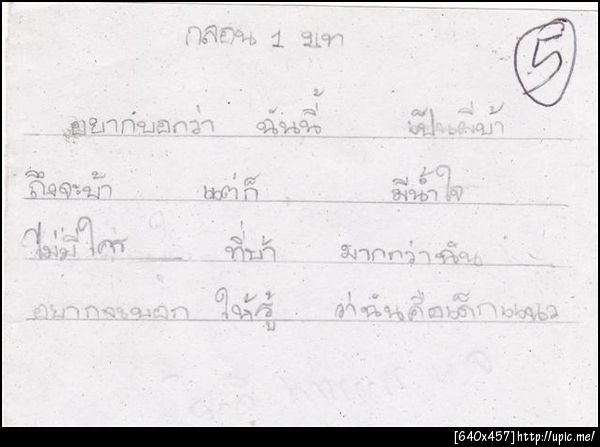 กลอน 1 บท
5
อยากบอกว่า ฉันนี้ เป็นผีบ้า
ถึงจะบ้า แต่ก็ มีน้ำใจ
ไม่มีใคร ที่บ้า มากกว่าฉัน
อยากจะบอก ให้รู้ ว่าฉันคือเด็กแนว
[640x457]http://upic.me/